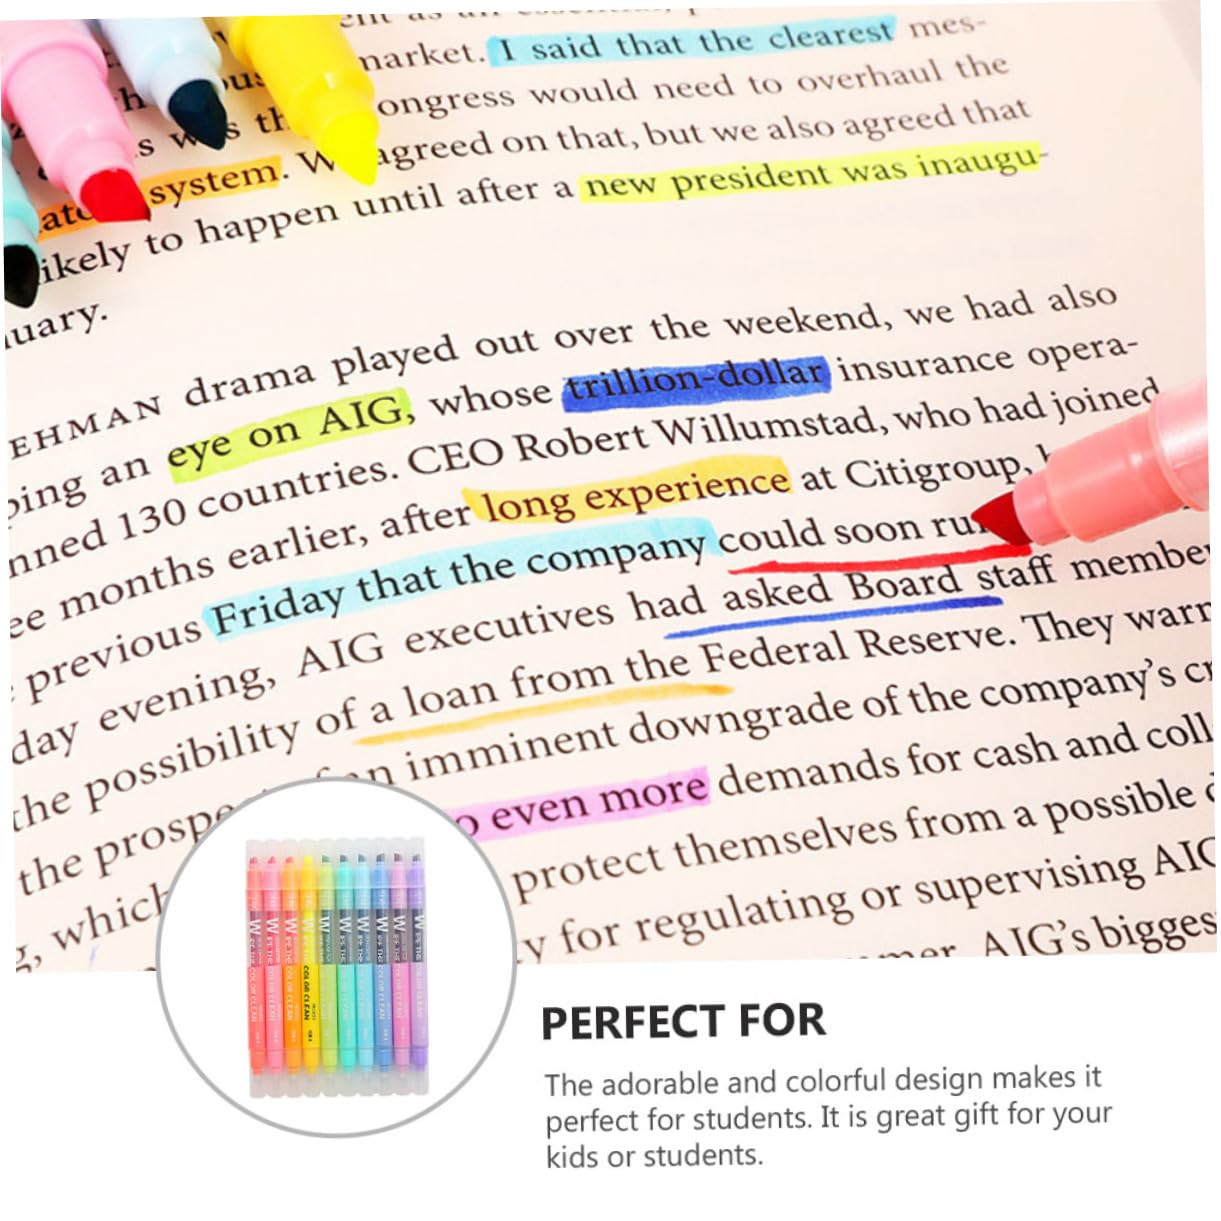 market. I said that the clearest mes-
ongress would need to overhaul the
agreed on that, but we also agreed that
system. likely to happen until after a new president was inaugu-
uary.
EHMAN drama played out over the weekend, we had also
ping an eye on AIG, whose trillion-dollar insurance opera-
nned 130 countries. CEO Robert Willumstad, who had joined
ee months earlier, after long experience at Citigroup,
previous Friday that the company could soon ru
day evening, AIG executives had asked Board staff member
the possibility of a loan from the Federal Reserve. They warn
the prospe an imminent downgrade of the company's cr
g, which o even more demands for cash and coll
protect themselves from a possible
y for regulating or supervising AIG
mer, AIG's bigges
PERFECT FOR
The adorable and colorful design makes it
perfect for students. It is great gift for your
kids or students.